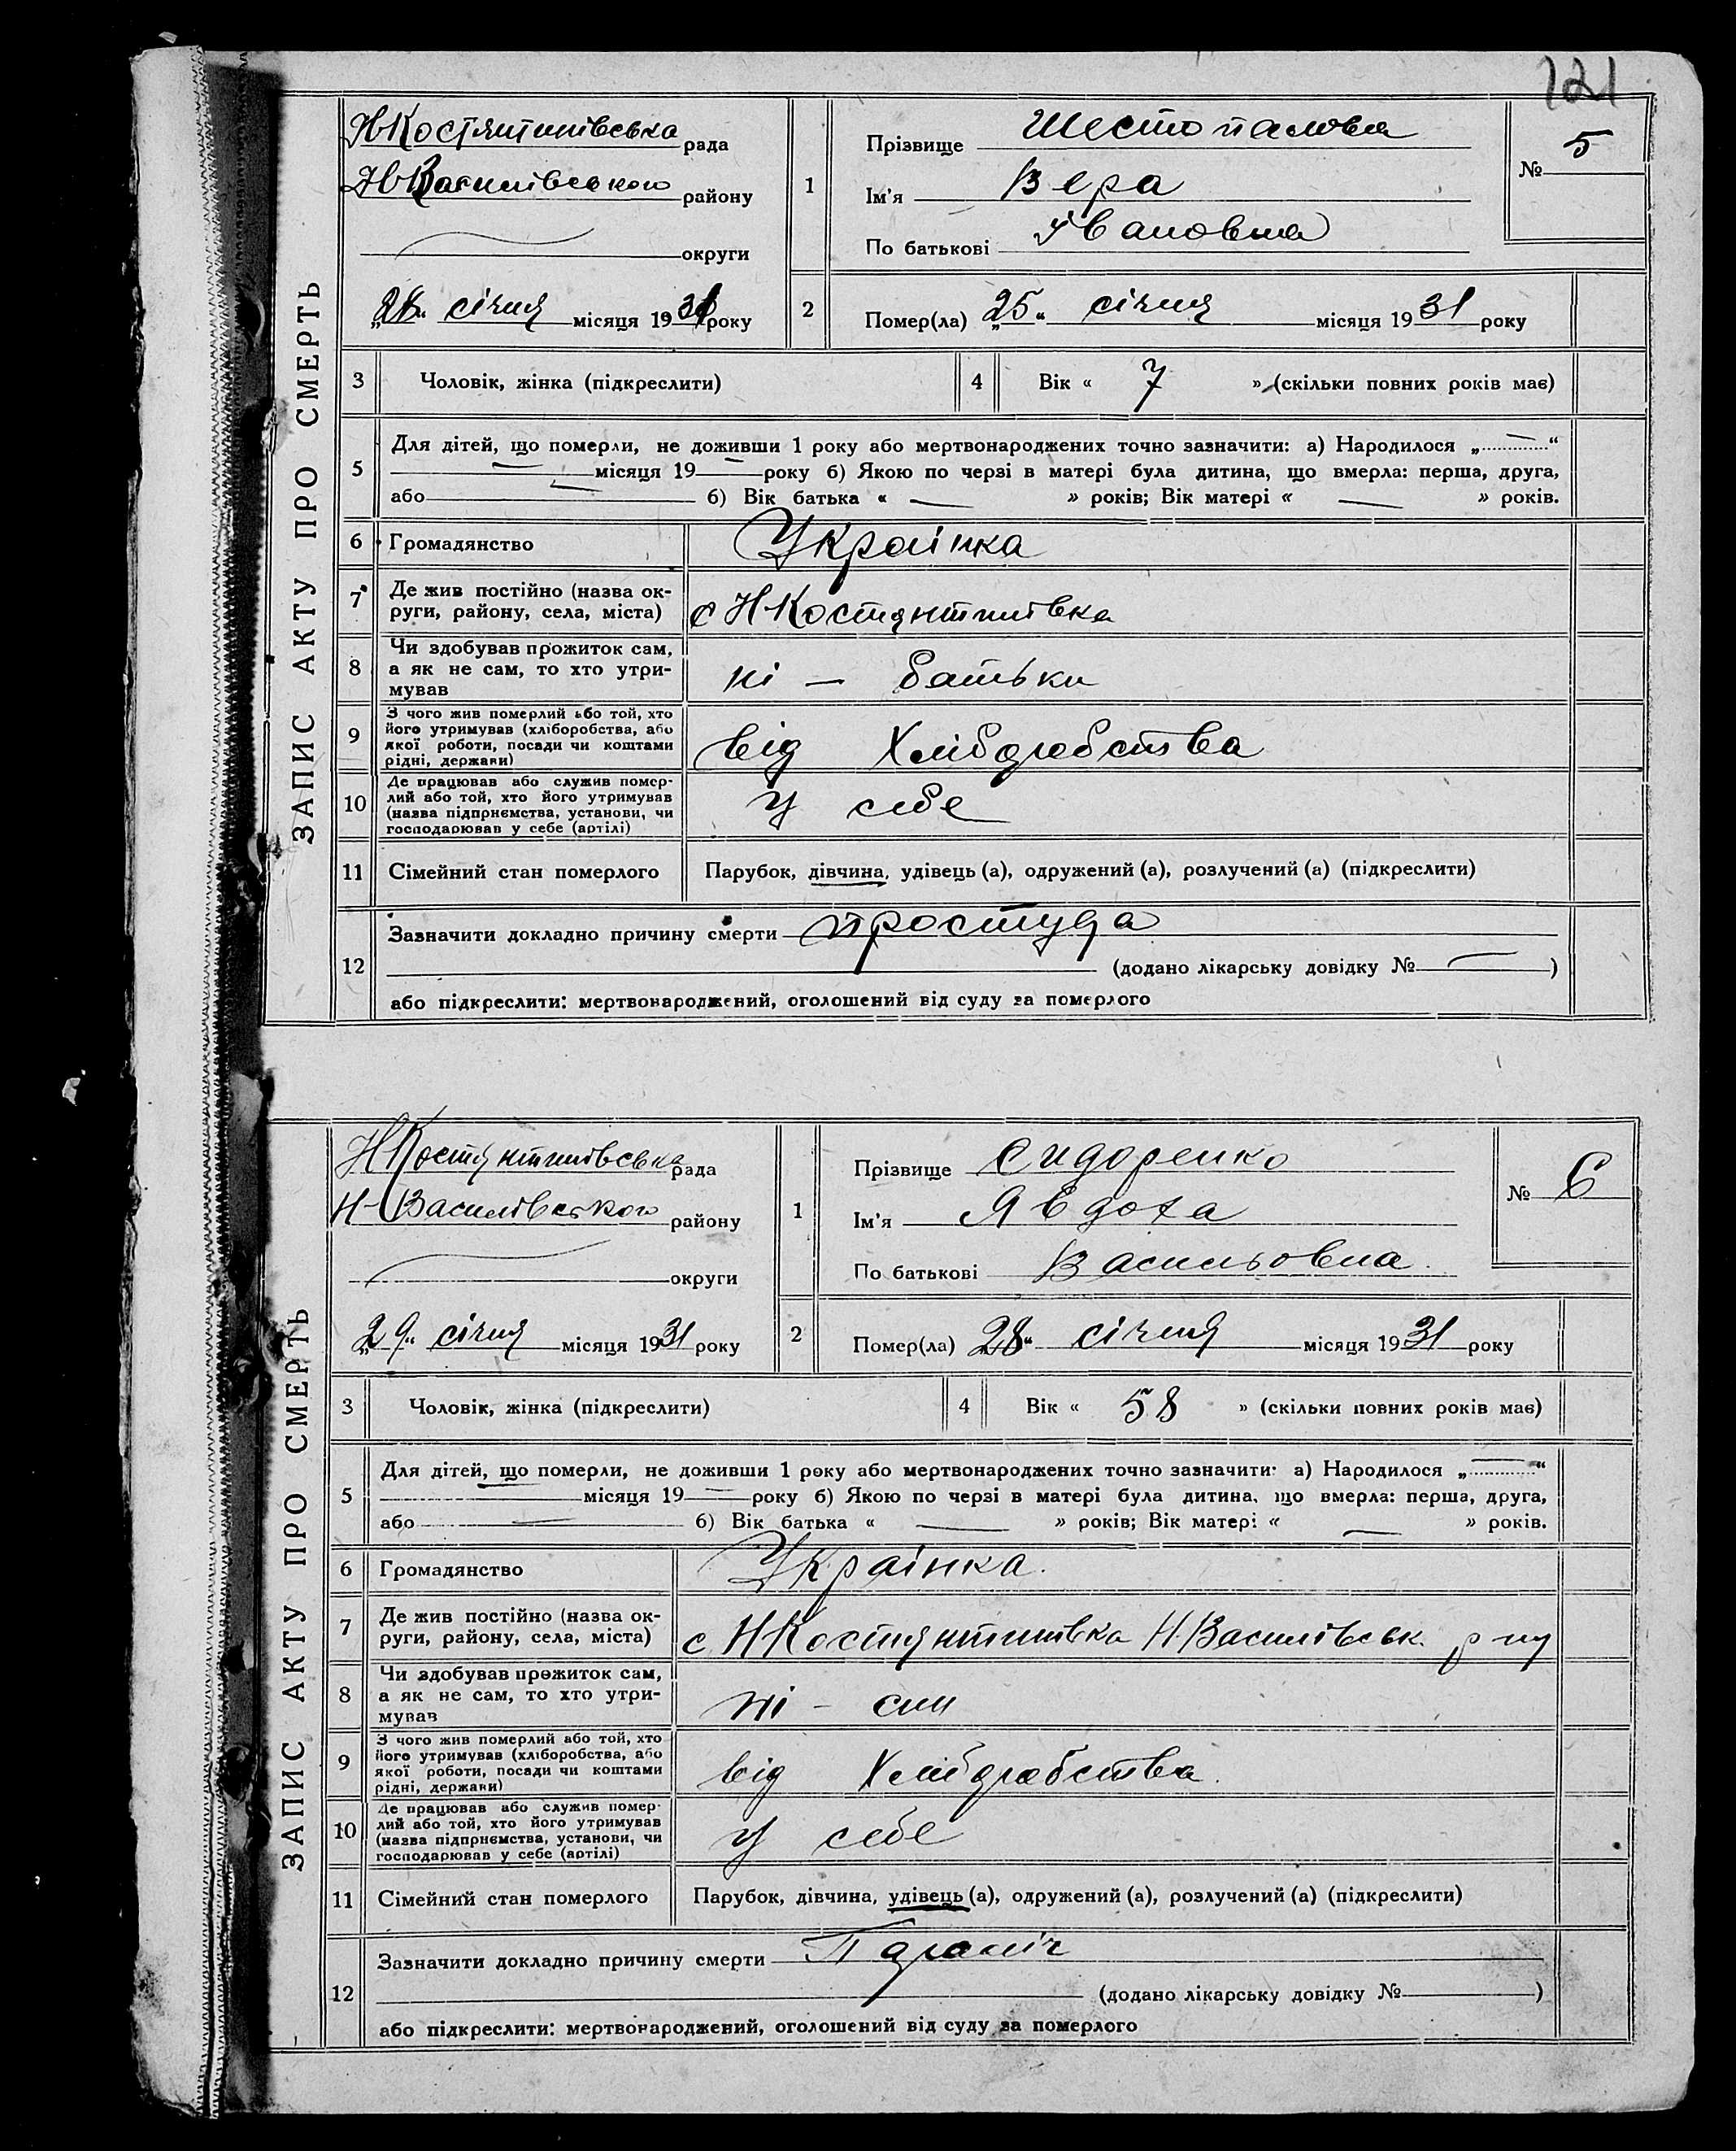 121
ЗАПИС АКТУ ПРО СМЕРТЬ
НКостянтинівська рада
НВасилівського району
округи
січня місяця 1931 року
1
Прізвище Шестопалова
Ім'я Вера
По батькові Івановна
№ 5
2
Помер(ла) „25“ січня місяця 1931 року
3 Чоловік, жінка (підкреслити)
4 Вік « 7 » (скільки повних років має)
5 Для дітей, що померли, не доживши 1 року або мертвонароджених точно зазначити: а) Народилося „ — “
— місяця 19 — року б) Якою по черзі в матері була дитина, що вмерла: перша, друга,
або — б) Вік батька « — » років; Вік матері « — » років.
6 Громадянство Украінка
7 Де жив постійно (назва ок-
руги, району, села, міста) с НКостянтинівка
8 Чи здобував прожиток сам,
а як не сам, то хто утри-
мував ні — батьки
9 З чого жив померлий або той, хто
його утримував (хліборобства, або
якої роботи, посади чи коштами
рідні, держави) від Хлібдробства
10 Де працював або служив помер-
лий або той, хто його утримував
(назва підприємства, установи, чи
господарював у себе (артілі) у себе
11 Сімейний стан померлого Парубок, дівчина, удівець (а), одружений (а), розлучений (а) (підкреслити)
12 Зазначити докладно причину смерти простуда
(додано лікарську довідку № — )
або підкреслити: мертвонароджений, оголошений від суду за померлого
ЗАПИС АКТУ ПРО СМЕРТЬ
НКостянтинівська рада
Н-Василівського району
округи
„29“ січня місяця 1931 року
1
Прізвище Сидоренко
Ім'я Явдоха
По батькові Васильовна
№ 6
2
Помер(ла) „28“ січня місяця 1931 року
3 Чоловік, жінка (підкреслити)
4 Вік « 58 » (скільки повних років має)
5 Для дітей, що померли, не доживши 1 року або мертвонароджених точно зазначити: а) Народилося „ — “
місяця 19 — року б) Якою по черзі в матері була дитина, що вмерла: перша, друга,
або — б) Вік батька « — » років; Вік матері « — » років.
6 Громадянство Украінка.
7 Де жив постійно (назва ок-
руги, району, села, міста) с НКостянтинівка Н.Василівськ. р-ну
8 Чи здобував прожиток сам,
а як не сам, то хто утри-
мував ні - син
9 З чого жив померлий або той, хто
його утримував (хліборобства, або
якої роботи, посади чи коштами
рідні, держави) від Хлібдробства.
10 Де працював або служив помер-
лий або той, хто його утримував
(назва підприємства, установи, чи
господарював у себе (артілі) у себе
11 Сімейний стан померлого Парубок, дівчина, удівець (а), одружений (а), розлучений (а) (підкреслити)
12 Зазначити докладно причину смерти
(додано лікарську довідку № )
або підкреслити: мертвонароджений, оголошений від суду за померлого